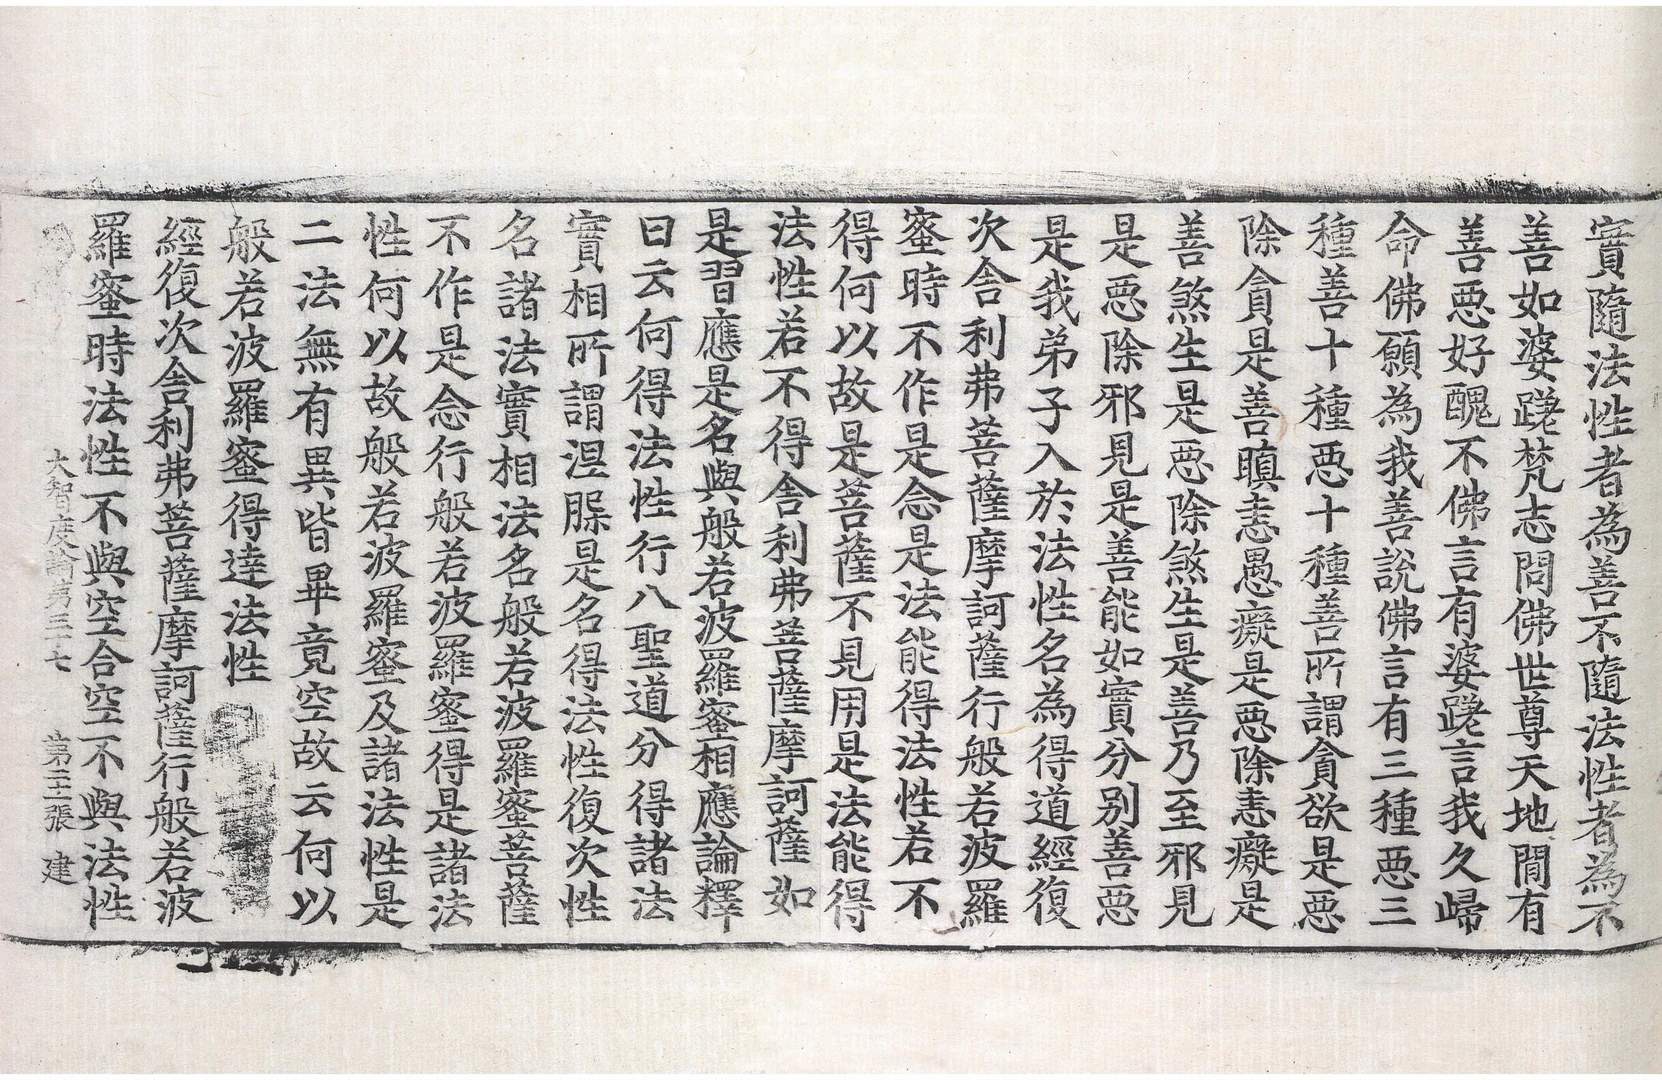 實隨法性者為善不隨法性者為不
善如婆蹉梵志問佛世尊天地間有
善惡好醜不佛言有婆蹉言我久歸
命佛願為我善說佛言有三種惡三
種善十種惡十種善所謂貪欲是惡
除貪是善瞋恚愚癡是惡除恚癡是
善煞生是惡除煞生是善乃至邪見
是惡除邪見是善能如實分別善惡
是我弟子入於法性名為得道經復
次舍利弗菩薩摩訶薩行般若波羅
蜜時不作是念是法能得法性若不
得何以故是菩薩不見用是法能得
法性若不得舍利弗菩薩摩訶薩如
是習應是名與般若波羅蜜相應論釋
曰云何得法性行八聖道分得諸法
實相所謂涅槃是名得法性復次性
名諸法實相法名般若波羅蜜菩薩
不作是念行般若波羅蜜得是諸法
性何以故般若波羅蜜及諸法性是
二法無有異皆畢竟空故云何以
般若波羅蜜得達法性
經復次舍利弗菩薩摩訶薩行般若波
羅蜜時法性不與空合空不與法性
大智度論第三十七 第二十二張 建